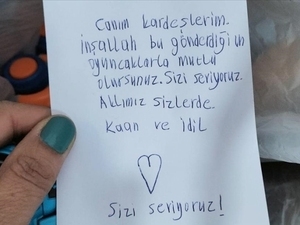 Canım kardeşlerim.
inşallah bu gönderdiğim
oyuncaklarla mutlu
olursunuz. Sizi seviyoruz.
Aklımız sizlerde.
Kaan ve idil
Sizi seviyoruz!